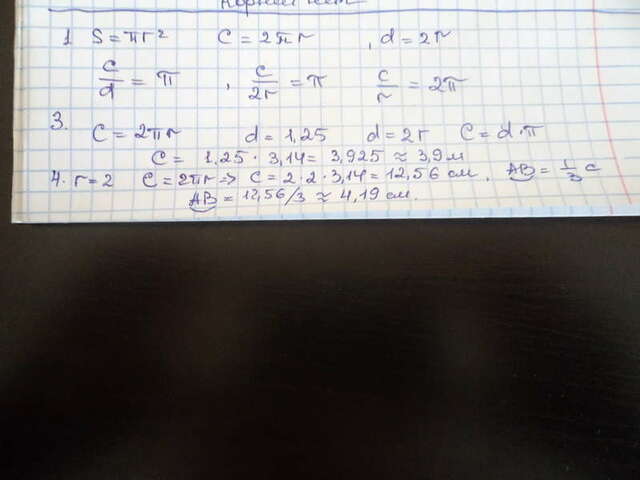 Корней нет
1 S = πr² C = 2πr , d = 2r
C/d = π , C/2r = π C/r = 2π
3. C = 2πr d = 1,25 d = 2r C = d·π
C = 1,25 · 3,14 = 3,925 ≈ 3,9 м
4. r = 2 C = 2πr => C = 2 · 2 · 3,14 = 12,56 см. AB = 1/3 C
AB = 12,56/3 ≈ 4,19 см.